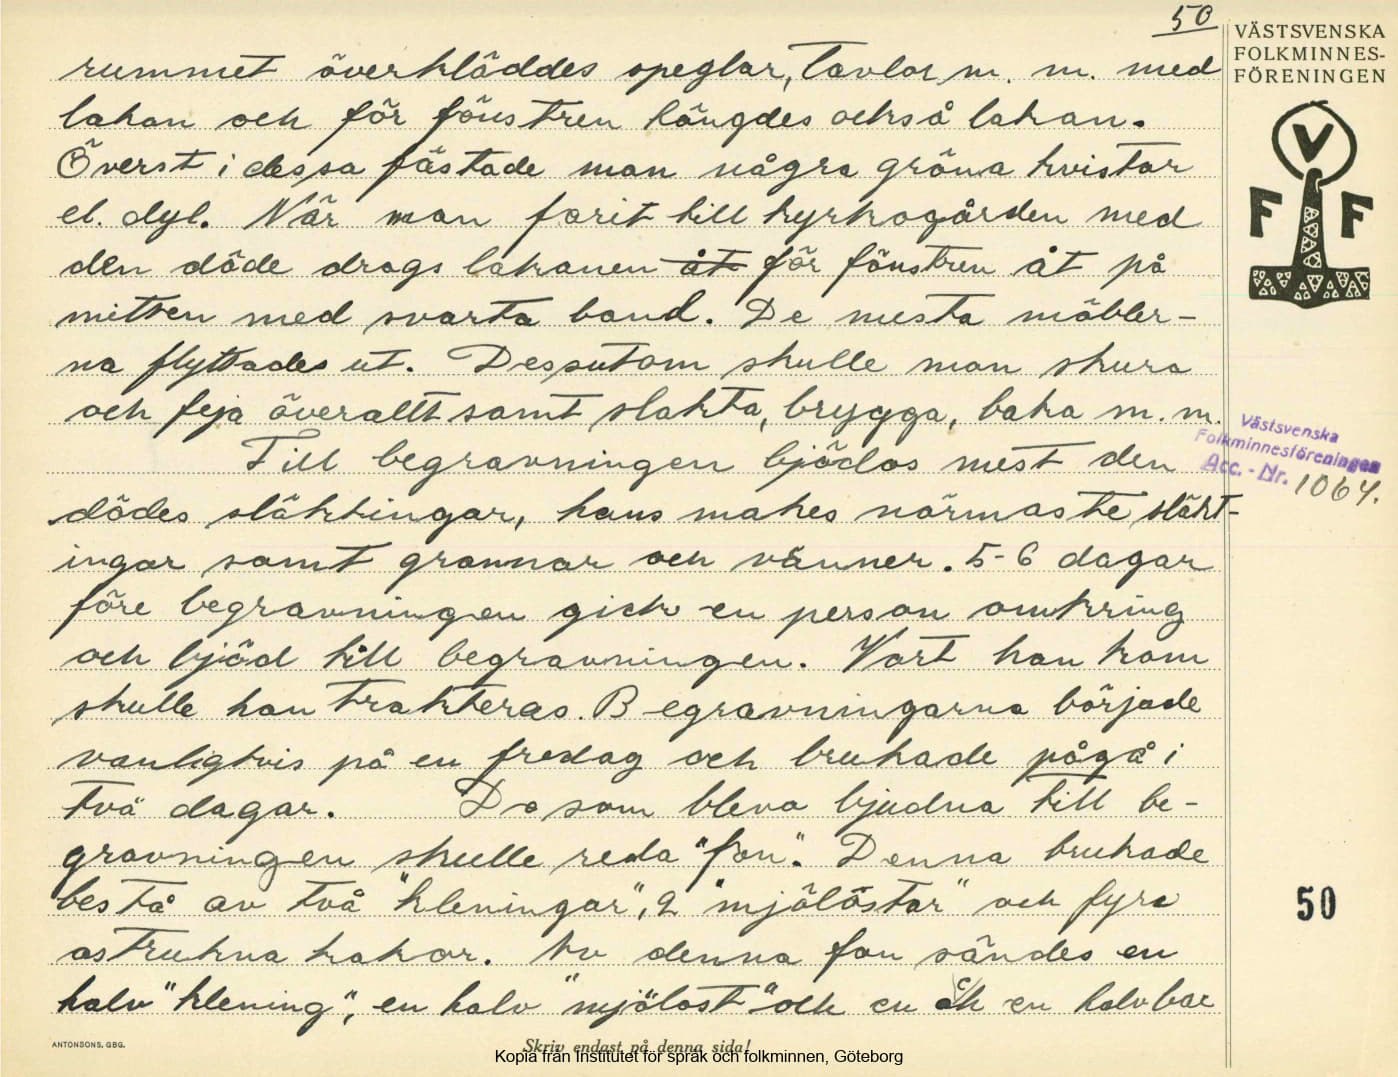 50
rummet överkläddes speglar, tavlor m. m. med
lakan och för fönstren hängdes också lakan.
Överst i dessa fästade man några gröna kvistar
el. dyl. När man farit till kyrkogården med
den döde drogs lakanen åt för fönstren åt på
mitten med svarta band. De mesta möbler-
na flyttades ut. Dessutom skulle man skura
och feja överallt samt slakta, brygga, baka m. m.
Till begravningen bjödos mest den
dödes släktingar, hans makes närmaste släkt-
ingar samt grannar och vänner. 5-6 dagar
före begravningen gick en person omkring
och bjöd till begravningen. Vart han kom
skulle han trakteras. Begravningarna började
vanligtvis på en fredag och brukade pågå i
två dagar. De som blevo bjudna till be-
gravningen skulle reda "fon". Denna brukade
bestå av två "kleningar", 2 "mjölöstar" och fyra
ostrukna kakor. Av denna fon sändes en
halv "klening", en halv "mjölost" och en och en halv bar
VÄSTSVENSKA
FOLKMINNES-
FÖRENINGEN
V
F F
Västsvenska
Folkminnesföreningen
Acc. - Nr. 1064.
50
ANTONSONS, GBG.
Skriv endast på denna sida!
Kopia från Institutet för språk och folkminnen, Göteborg